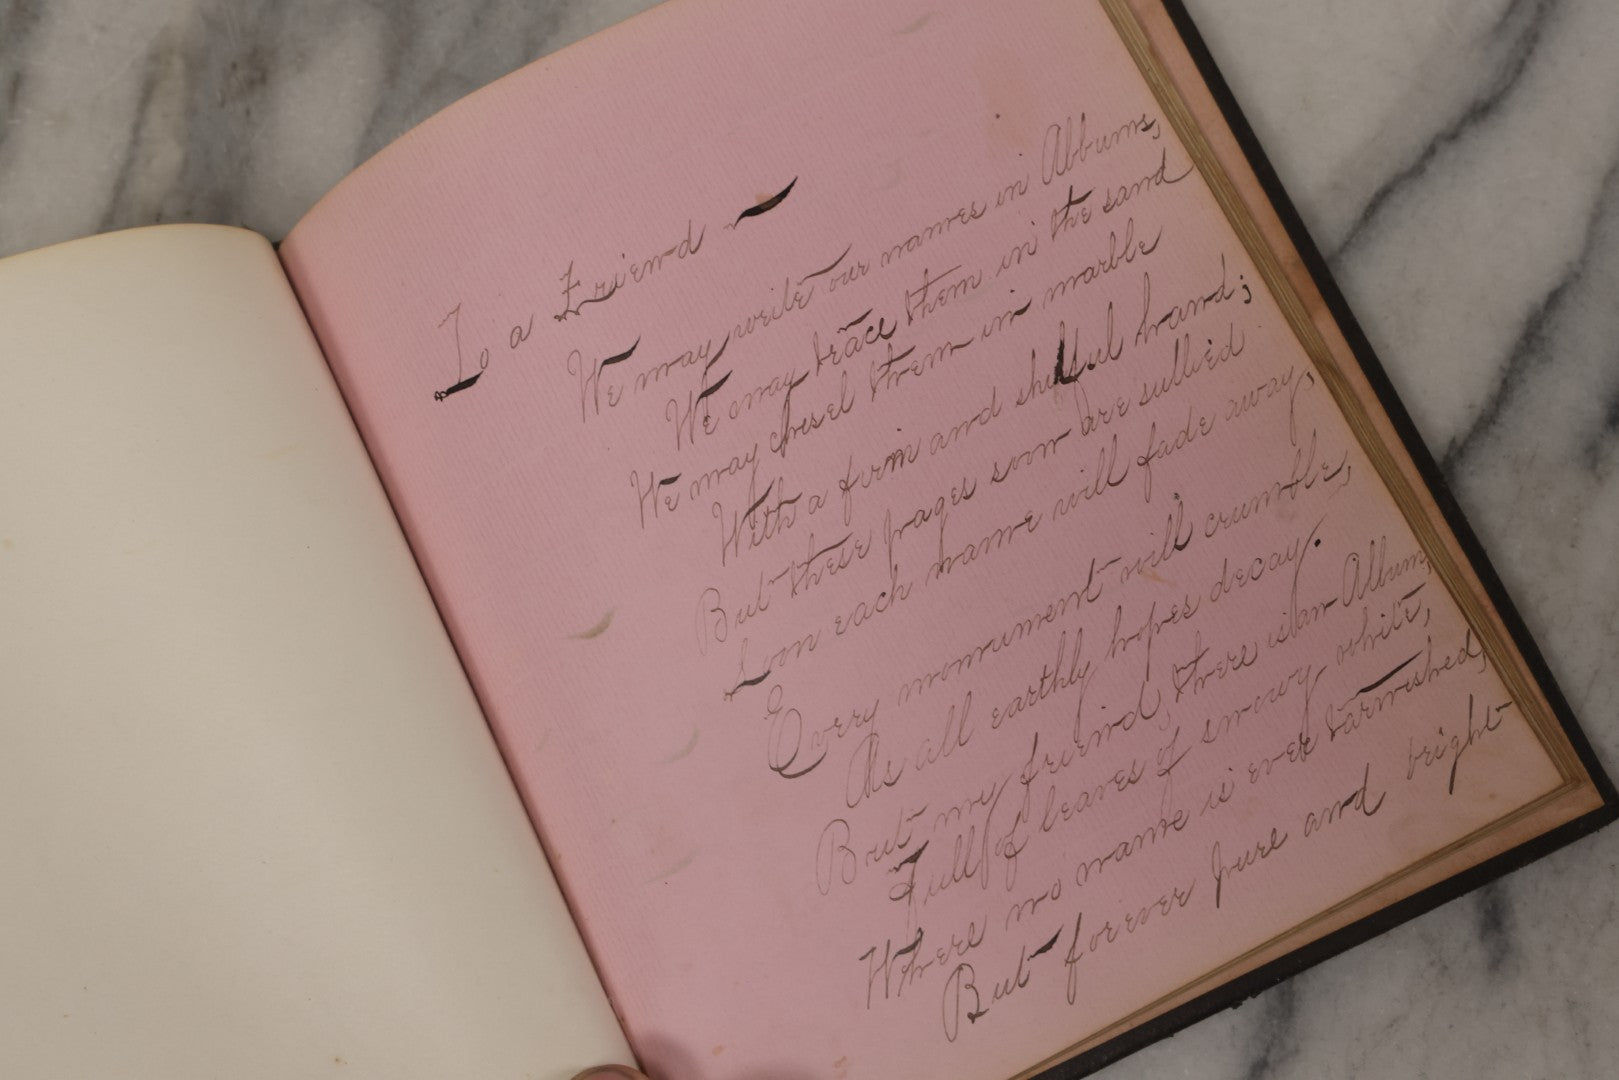 To a Friend ~
We may write our names in Albums,
We may trace them in the sand
We may chisel them in marble
With a firm and skilful hand;
But these pages soon are sullied
Soon each name will fade away,
Every monument will crumble,
As all earthly hopes decay.
But my friend, there is an Album,
Full of leaves of snowy white,
Where no name is ever tarnished,
But forever pure and bright